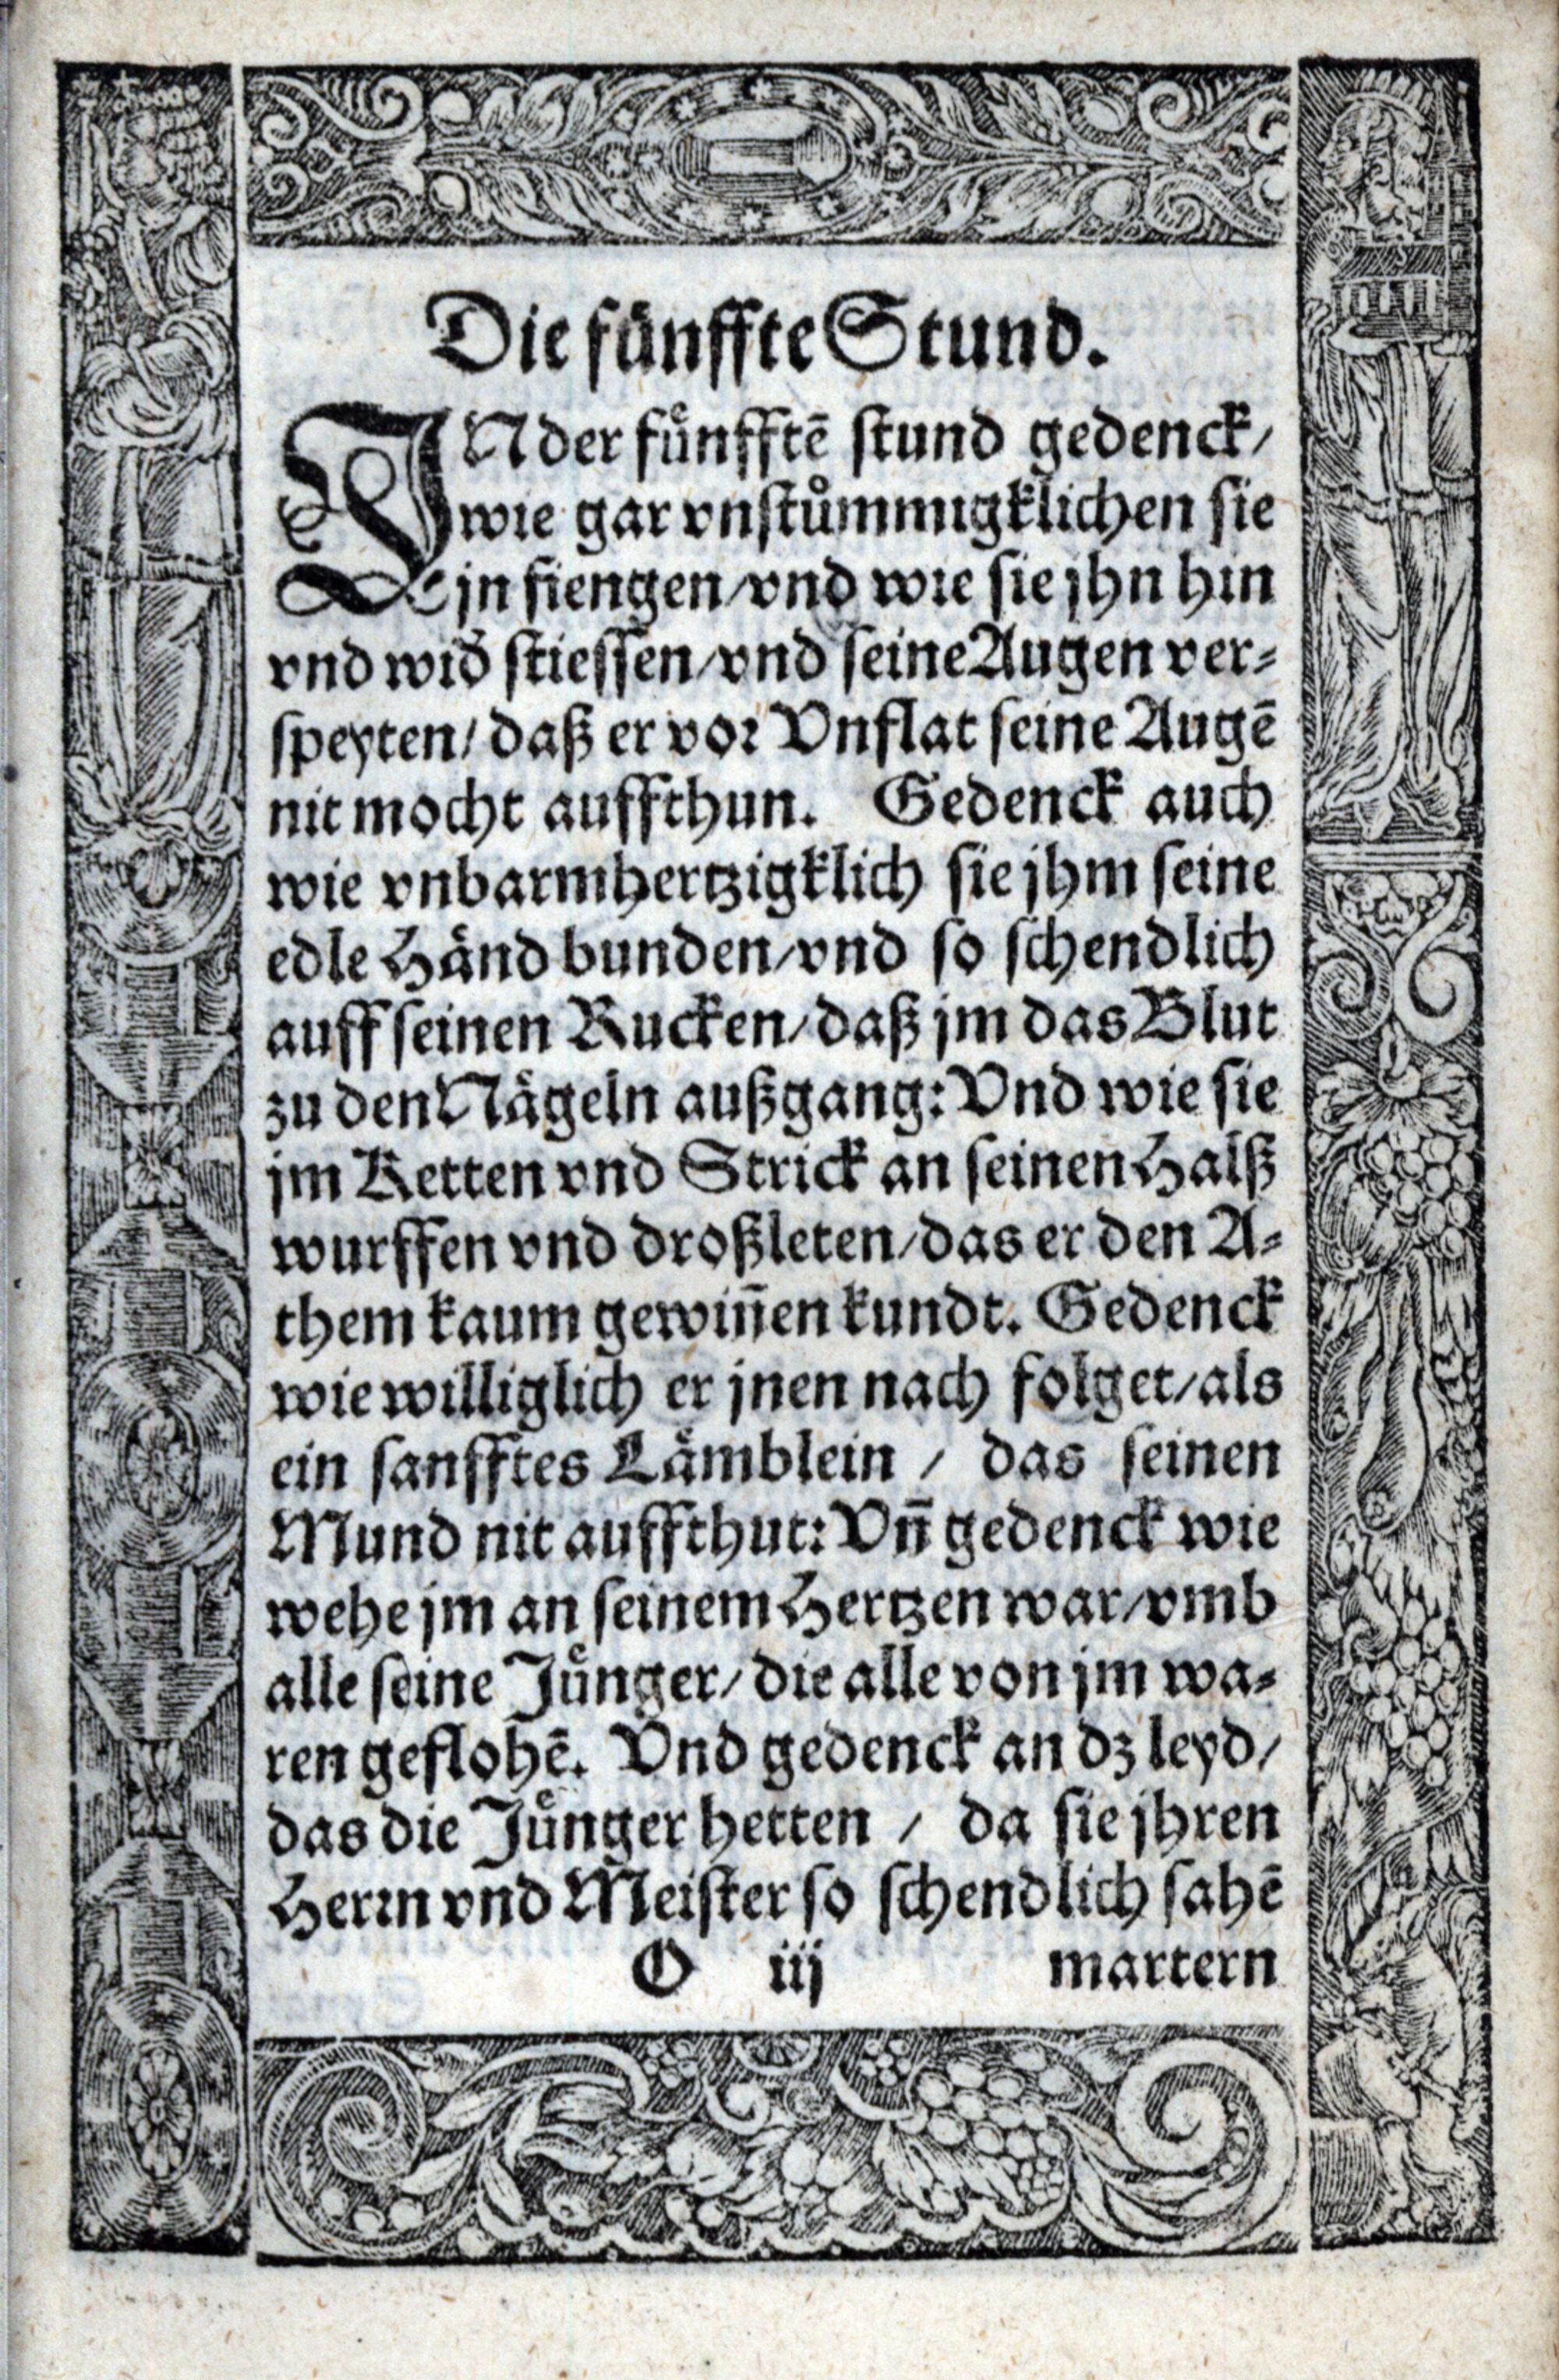 Die fünffte Stund.
IN der fuͤnfftē stund gedenck/
wie gar vnstuͦmmigklichen sie
jn fiengen/vnd wie sie jhn hin
vnd wid̄ stiessen/vnd seine Augen ver⸗
speyten/daß er vor Vnflat seine Augē
nit mocht auffthun. Gedenck auch
wie vnbarmhertzigklich sie jhm seine
edle Haͤnd bunden/vnd so schendlich
auff seinen Rucken/daß jm das Blut
zu den Naͤgeln außgang: Vnd wie sie
jm Ketten vnd Strick an seinen Halß
wurffen vnd droßleten/das er den A⸗
them kaum gewiñen kundt. Gedenck
wie williglich er jnen nach folget/als
ein sanfftes Laͤmblein / das seinen
Mund nit auffthut: Vñ gedenck wie
wehe jm an seinem Hertzen war/vmb
alle seine Juͤnger/die alle von jm wa⸗
ren geflohē. Vnd gedenck an dz leyd/
das die Juͤnger hetten / da sie jhren
Herrn vnd Meister so schendlich sahē
O iij martern